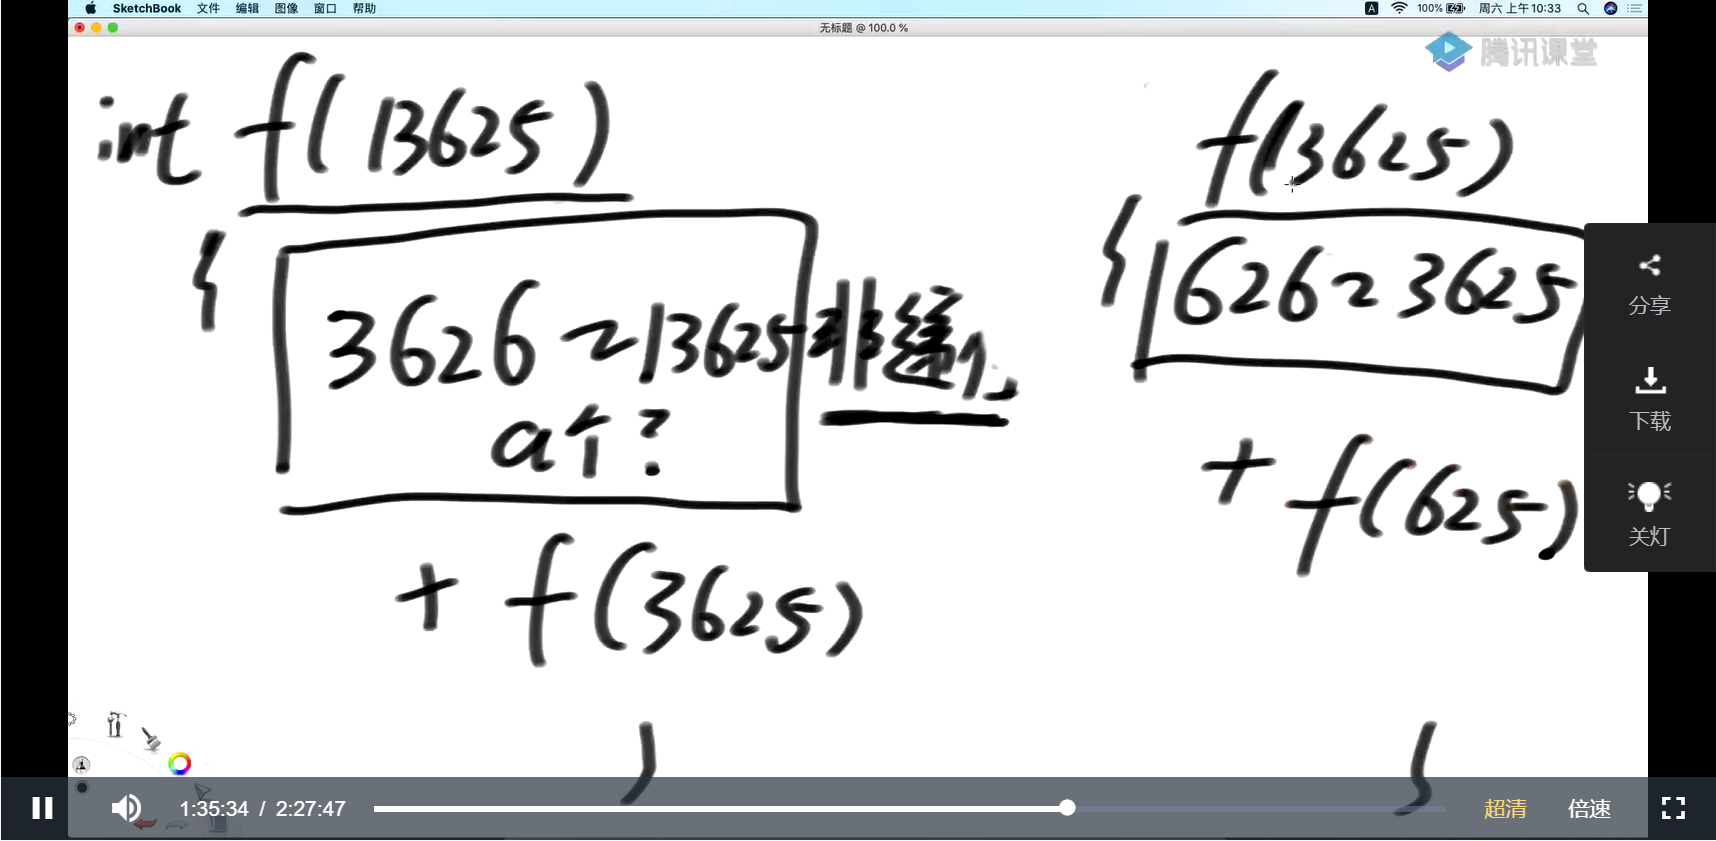 SketchBook 文件 编辑 图像 窗口 帮助
A 100% 周六 上午10:33
无标题 @ 100.0 %
腾讯课堂
int f(13625)
{
3626~13625 非递归
a个?
+ f(3625)
}
f(3625)
{
626~3625
+ f(625)
}
分享
下载
关灯
1:35:34 / 2:27:47
超清
倍速